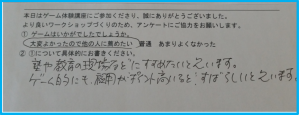 本日はゲーム体験講座にご参加くださり、誠にありがとうございました。
より良いワークショップづくりのため、アンケートにご協力をお願いします。
① ゲームはいかがでしたでしょうか。
大変よかったので他の人に薦めたい 普通 あまりよくなかった
② ①について具体的にお書きください。
や教育の現場などにすすめたいと思います。
ゲーム的にも、 がポイント高いなど!すばらしいと思います。